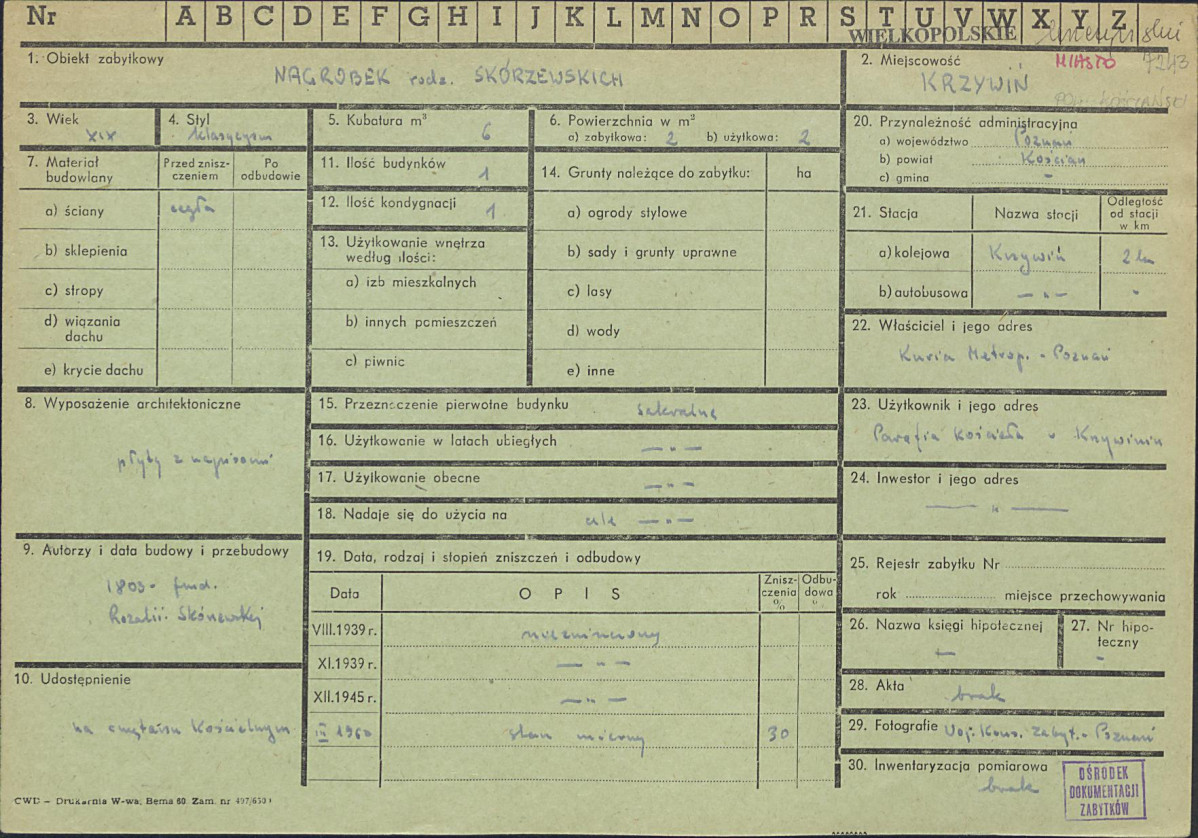 Nr A B C D E F G H I J K L M N O P R S T U V W X Y Z
WIELKOPOLSKIE
MIASTO 7243
1. Obiekt zabytkowy
NAGROBEK rodz. SKÓRZEWSKICH
2. Miejscowość
KRZYWIŃ
POW. KOŚCIAŃSKI
3. Wiek
XIX
4. Styl
klasycyzm
5. Kubatura m³
6
6. Powierzchnia w m²
a) zabytkowa: 2 b) użytkowa: 2
7. Materiał budowlany
Przed zniszczeniem
Po odbudowie
a) ściany cegła
b) sklepienia
c) stropy
d) wiązania dachu
e) krycie dachu
8. Wyposażenie architektoniczne
płyty z napisami
9. Autorzy i data budowy i przebudowy
1803 - fund.
Rozalii Skórzewskiej
10. Udostępnienie
na cmętarzu Kościelnym
11. Ilość budynków
1
12. Ilość kondygnacji
1
13. Użytkowanie wnętrza według ilości:
a) izb mieszkalnych
b) innych pomieszczeń
c) piwnic
14. Grunty należące do zabytku: ha
a) ogrody stylowe
b) sady i grunty uprawne
c) lasy
d) wody
e) inne
15. Przeznaczenie pierwotne budynku sakralne
16. Użytkowanie w latach ubiegłych — „ —
17. Użytkowanie obecne — „ —
18. Nadaje się do użycia na cele — „ —
19. Data, rodzaj i stopień zniszczeń i odbudowy
Data OPIS Zniszczenia % Odbudowa %
VIII.1939 r. niezniszczony
XI.1939 r. — „ —
XII.1945 r. — „ —
III 1960 stan mierny 30
20. Przynależność administracyjna
a) województwo Poznań
b) powiat Kościan
c) gmina -
21. Stacja Nazwa stacji Odległość od stacji w km
a) kolejowa Krzywiń 2 km
b) autobusowa — „ — „
22. Właściciel i jego adres
Kuria Metrop. - Poznań
23. Użytkownik i jego adres
Parafia Kościoła w Krzywiniu
24. Inwestor i jego adres
— „ —
25. Rejestr zabytku Nr
rok miejsce przechowywania
26. Nazwa księgi hipotecznej
-
27. Nr hipoteczny
-
28. Akta
brak
29. Fotografie Woj. Kons. Zabyt. - Poznań
30. Inwentaryzacja pomiarowa
brak
OŚRODEK
DOKUMENTACJI
ZABYTKÓW
CWD – Drukarnia W-wa, Bema 60. Zam. nr